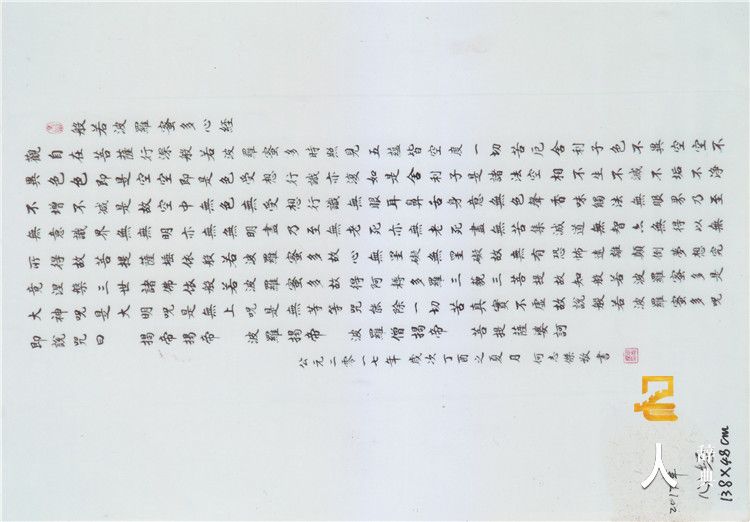 般若波羅蜜多心経
觀自在菩薩行深般若波羅蜜多時照見五蘊皆空度一切苦厄舍利子色不異空空不
異色色即是空空即是色受想行識亦復如是舍利子是諸法空相不生不滅不垢不淨
不增不減是故空中無色無受想行識無眼耳鼻舌身意無色聲香味觸法無眼界乃至
無意識界無無明亦無無明盡乃至無老死亦無老死盡無苦集滅道無智亦無得以無
所得故菩提薩埵依般若波羅蜜多故心無罣礙無罣礙故無有恐怖遠離顛倒夢想究
竟涅槃三世諸佛依般若波羅蜜多故得阿耨多羅三藐三菩提故知般若波羅蜜多是
大神呪是大明呪是無上呪是無等等咒能除一切苦真實不虛故說般若波羅蜜多呪
即說咒曰 揭帝揭帝 波羅揭帝 波羅僧揭帝 菩提薩婆訶
公元二零一七年 歲次丁酉之夏月 何志傑敬書
2017年
心經
138X48cm
人